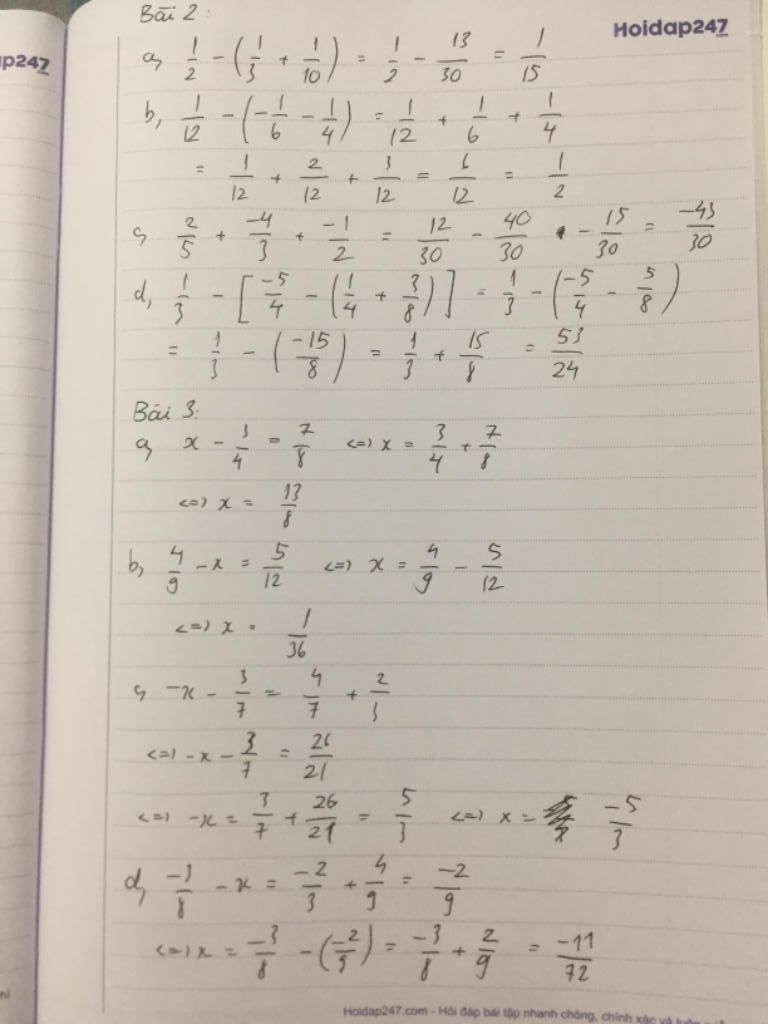 Bài 2:
Hoidap247
ap247
a, 1/2 - (1/3 + 1/10) = 1/2 - 13/30 = 1/15
b, 1/12 - (-1/6 - 1/4) = 1/12 + 1/6 + 1/4
= 1/12 + 2/12 + 3/12 = 6/12 = 1/2
c, 2/5 + -4/3 + -1/2 = 12/30 - 40/30 - 15/30 = -43/30
d, 1/3 - [-5/4 - (1/4 + 3/8)] = 1/3 - (-5/4 - 5/8)
= 1/3 - (-15/8) = 1/3 + 15/8 = 53/24
Bài 3:
a, x - 3/4 = 7/8 <=> x = 3/4 + 7/8
<=> x = 13/8
b, 4/9 - x = 5/12 <=> x = 4/9 - 5/12
<=> x = 1/36
c, -x - 3/7 = 4/7 + 2/3
<=> -x - 3/7 = 26/21
<=> -x = 3/7 + 26/21 = 5/3 <=> x = -5/3
d, -3/8 - x = -2/3 + 4/9 = -2/9
<=> x = -3/8 - (-2/9) = -3/8 + 2/9 = -11/72
Hoidap247.com - Hỏi đáp bài tập nhanh chóng, chính xác và